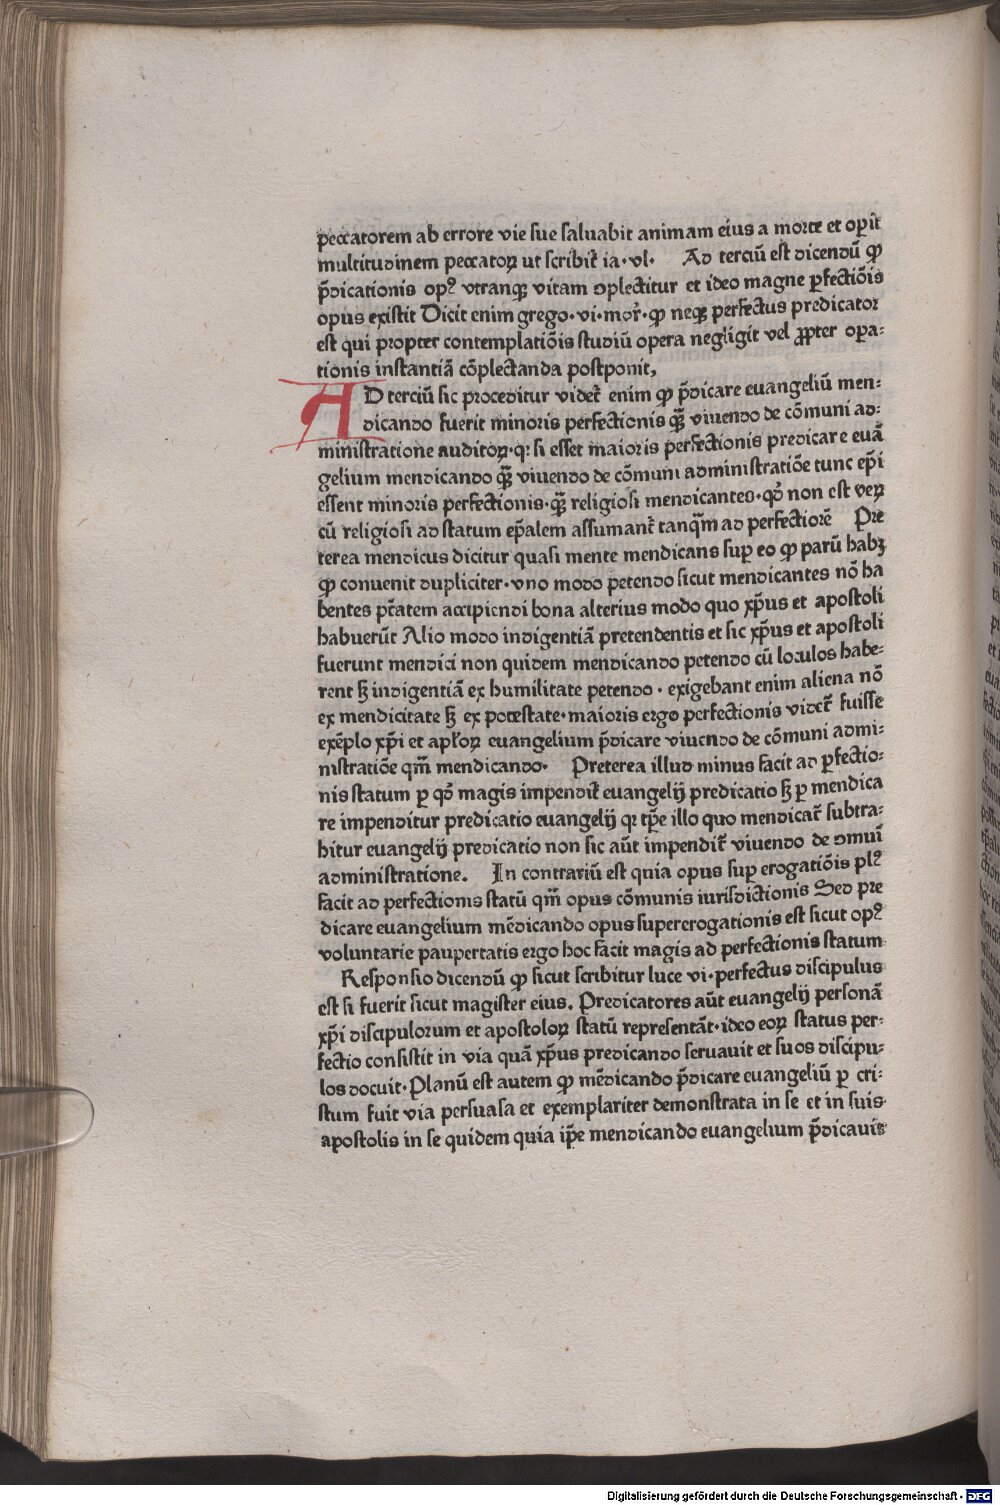 peccatorem ab errore vie sue saluabit animam eius a morte et operit̄
multitudinem peccatoꝝ ut scribit̄ ia·vl· Ad terciū est dicendū ꝙ
p̄dicationis opꝰ vtranqꝫ vitam ꝯplectitur et ideo magne ꝑfectiōis
opus existit Dicit enim grego·vi·mor̄·ꝙ neqꝫ perfectus predicator
est qui propter contemplatiōis studiū opera negligit vel ꝓpter opa-
tionis instantiā cōplectanda postponit,
AD terciū sic proceditur videt̄ enim ꝙ p̄dicare euangeliū men:
dicando fuerit minoris perfectionis qꝫ̄ viuendo de cōmuni ad:
ministratione auditoꝝ·qꝛ si esset maioris perfectionis predicare euā
gelium mendicando qꝫ̄ viuendo de cōmuni administratiōe tunc ep̄i
essent minoris perfectionis·qꝫ̄ religiosi mendicantes·qd̄ non est veꝝ
cū religiosi ad statum ep̄alem assumant̄ tanqm̄ ad perfectiorē Pre
terea mendicus dicitur quasi mente mendicans suꝑ eo ꝙ parū habꝫ
ꝙ conuenit dupliciter·vno modo petendo sicut mendicantes nō ha
bentes pt̄atem accipiendi bona alterius modo quo xp̄us et apostoli
habuerūt Alio modo indigentiā pretendentis et sic xp̄us et apostoli
fuerunt mendici non quidem mendicando petendo cū loculos habe-
rent sꝫ indigentiā ex humilitate petendo· exigebant enim aliena nō
ex mendicitate sꝫ ex potestate·maioris ergo perfectionis videt̄ fuisse
exēplo xp̄i et apl̄oꝝ euangelium p̄dicare viuendo de cōmuni admi:
nistratiōe qm̄ mendicando· Preterea illud minus facit ad ꝑfectio-
nis statum ꝑ qd̄ magis impendit̄ euangelij predicatio sꝫ ꝑ mendica
re impenditur predicatio euangelij qꝛ tp̄e illo quo mendicat̄ subtra-
hitur euangelij predicatio non sic aūt impendit̄ viuendo de ꝯmuī
administratione. In contrariū est quia opus suꝑ erogatiōis plꝰ
facit ad perfectionis statū qm̄ opus cōmunis iurisdictionis Sed pre
dicare euangelium mēdicando opus supererogationis est sicut opꝰ
voluntarie paupertatis ergo hoc facit magis ad perfectionis statum
Responsio dicendū ꝙ sicut scribitur luce vi·perfectus discipulus
est si fuerit sicut magister eius. Predicatores aūt euangelij personā
xp̄i discipulorum et apostoloꝝ statū representāt·ideo eoꝝ status per-
fectio consistit in via quā xp̄us predicando seruauit et suos discipu:
los docuit·Planū est autem ꝙ mēdicando p̄dicare euangeliū ꝑ cri:
stum fuit via persuasa et exemplariter demonstrata in se et in suis
apostolis in se quidem quia ip̄e mendicando euangelium p̄dicauit
Digitalisierung gefördert durch die Deutsche Forschungsgemeinschaft - DFG